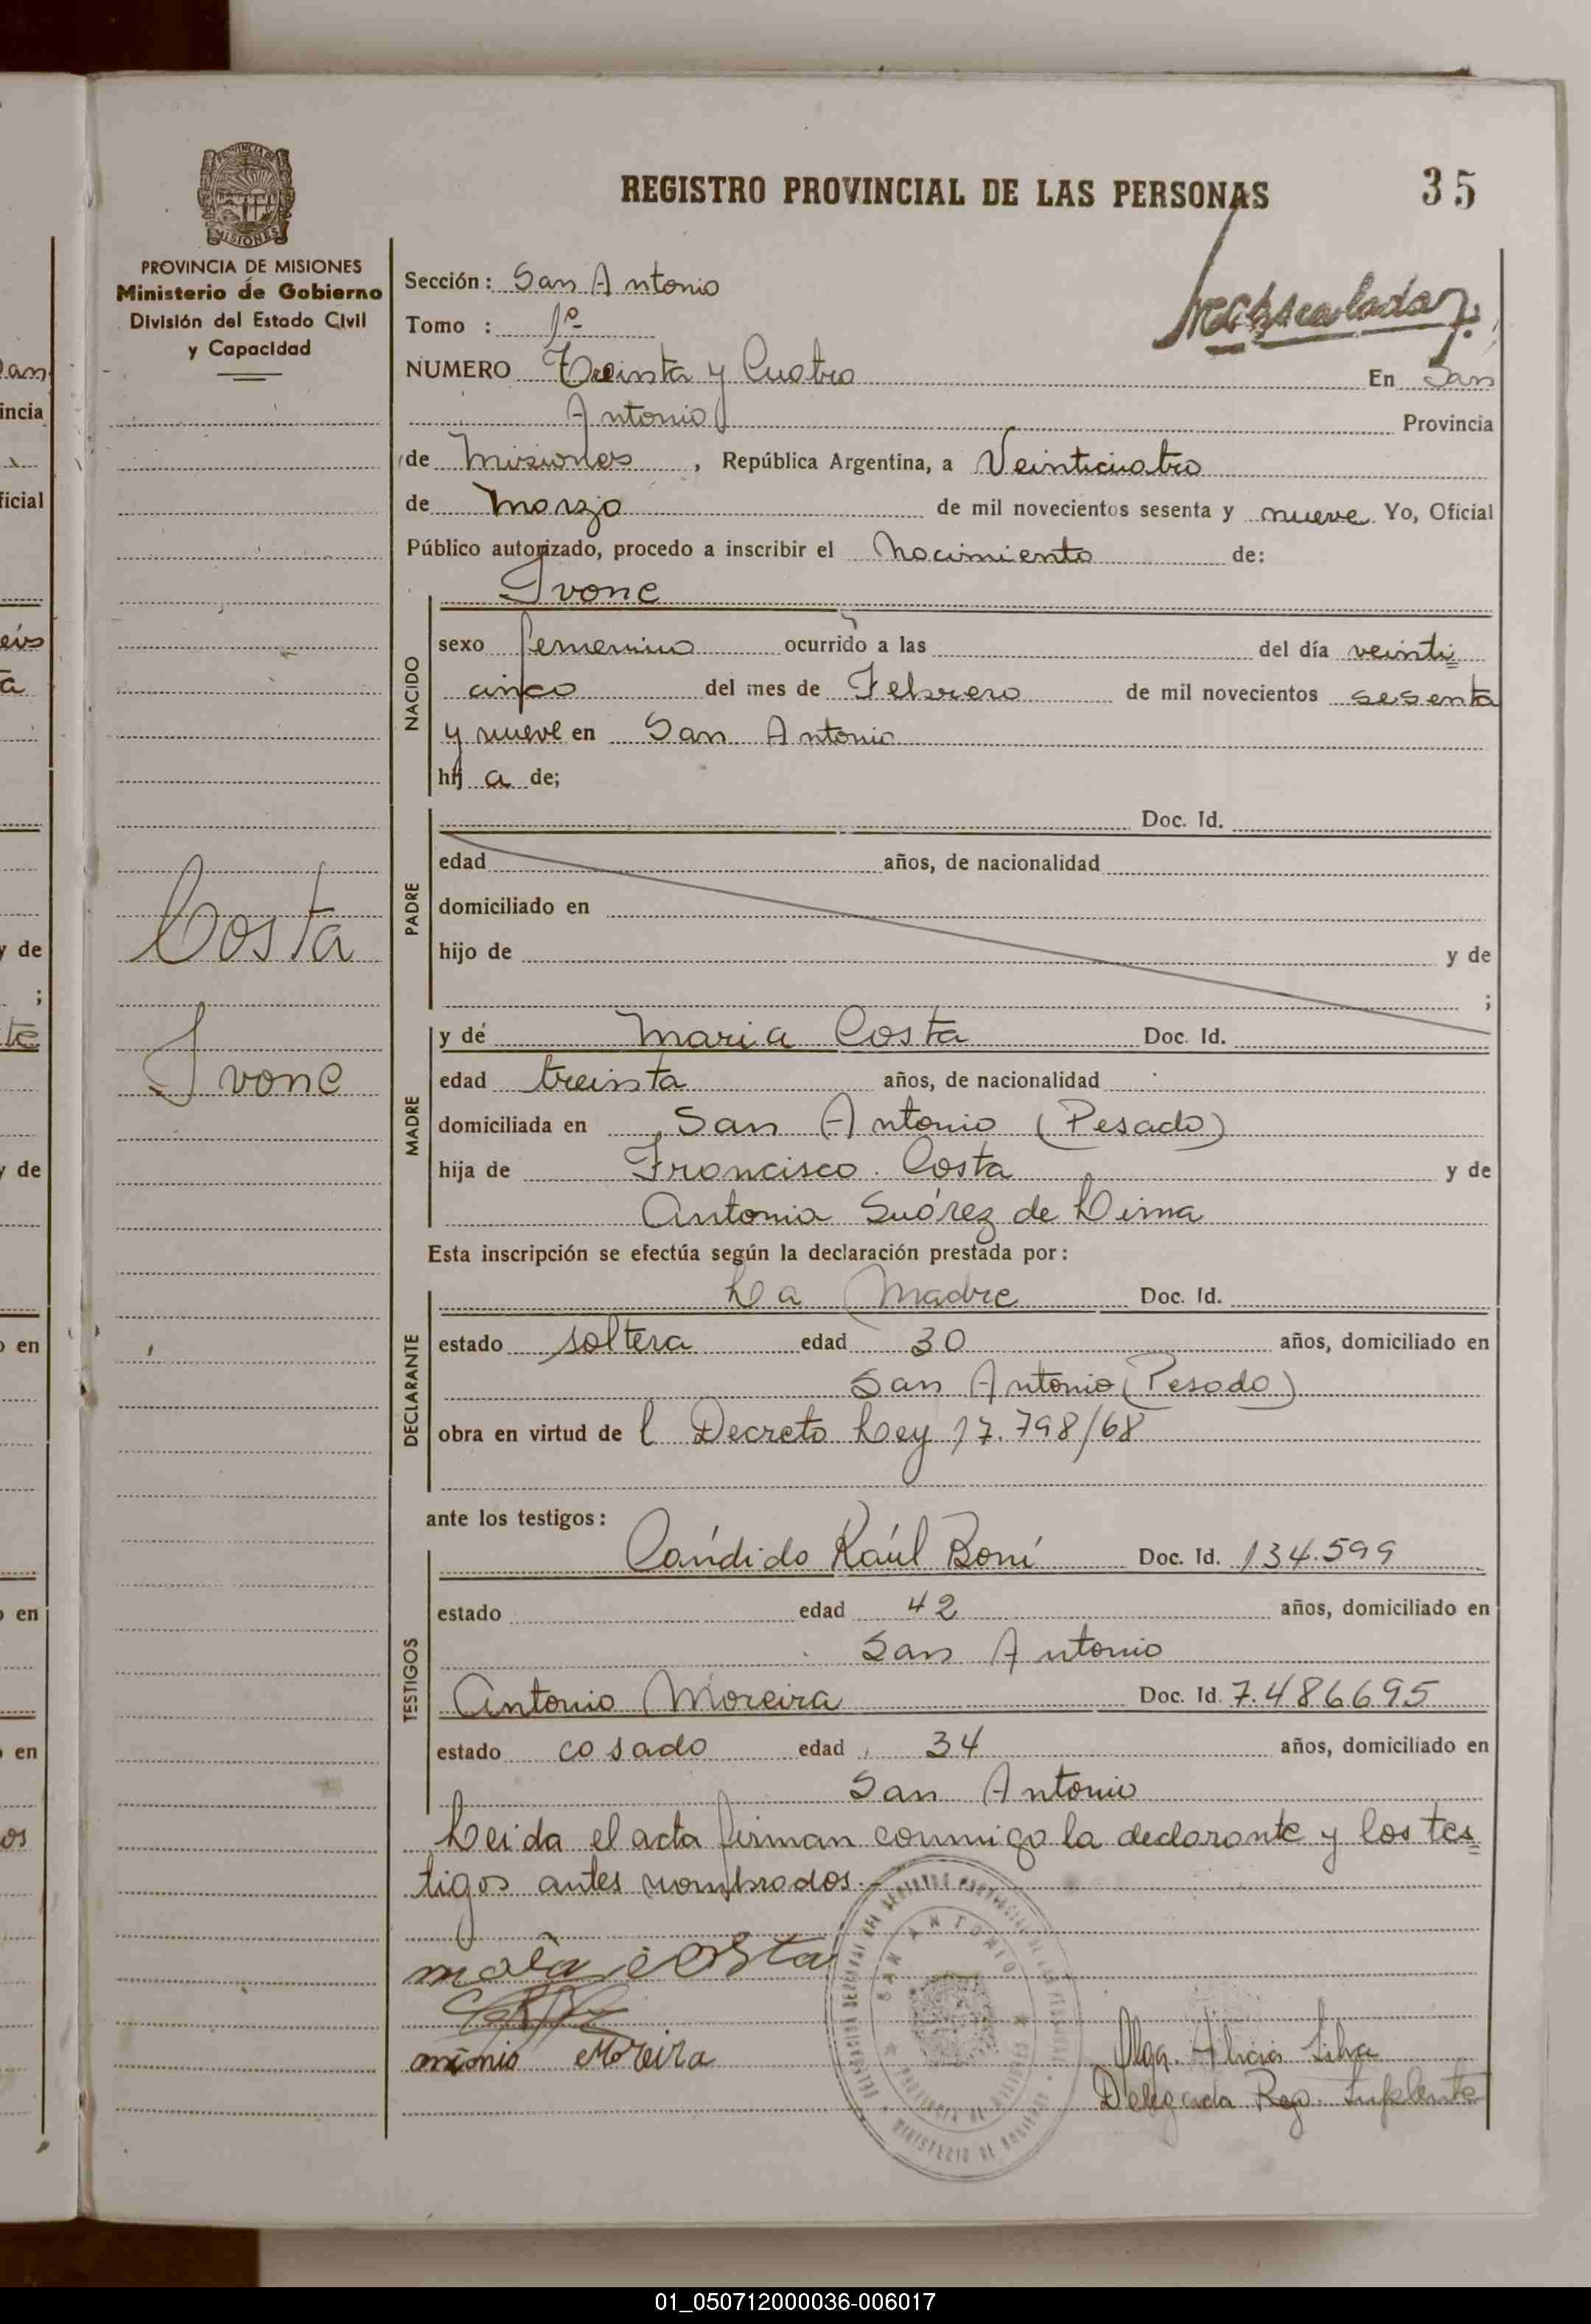 REGISTRO PROVINCIAL DE LAS PERSONAS
35
PROVINCIA DE MISIONES
MISIONES
PROVINCIA DE MISIONES
Ministerio de Gobierno
División del Estado Civil
y Capacidad
Costa
Ivone
Sección: San Antonio
Tomo : 1º
NUMERO Treinta y Cuatro En San
Antonio Provincia
de Misiones, República Argentina, a Veinticuatro
de Marzo de mil novecientos sesenta y nueve Yo, Oficial
Público autorizado, procedo a inscribir el Nacimiento de:
Ivone
NACIDO
sexo femenino ocurrido a las del día veinti
cinco del mes de Febrero de mil novecientos sesenta
y nueve en San Antonio
hij a de;
PADRE
Doc. Id.
edad años, de nacionalidad
domiciliado en
hijo de y de
;
MADRE
y de Maria Costa Doc. Id.
edad treinta años, de nacionalidad
domiciliada en San Antonio (Pesado)
hija de Francisco Costa y de
Antonia Suárez de Lima
Esta inscripción se efectúa según la declaración prestada por:
DECLARANTE
La Madre Doc. Id.
estado soltera edad 30 años, domiciliado en
San Antonio (Pesado)
obra en virtud de l Decreto Ley 17.798/68
ante los testigos:
TESTIGOS
Cándido Raúl Boni Doc. Id. 134.599
estado edad 42 años, domiciliado en
San Antonio
Antonio Moreira Doc. Id. 7.486695
estado casado edad 34 años, domiciliado en
San Antonio
Leida el acta firman conmigo la declarante y los tes=
tigos antes nombrados.-
maria costa
antonio Moreira
SAN ANTONIO
Olga Alicia Silva
Delegada Reg. Suplente
an
incia
ficial
eis
a
y de
;
te
y de
en
en
en
os
01_050712000036-006017